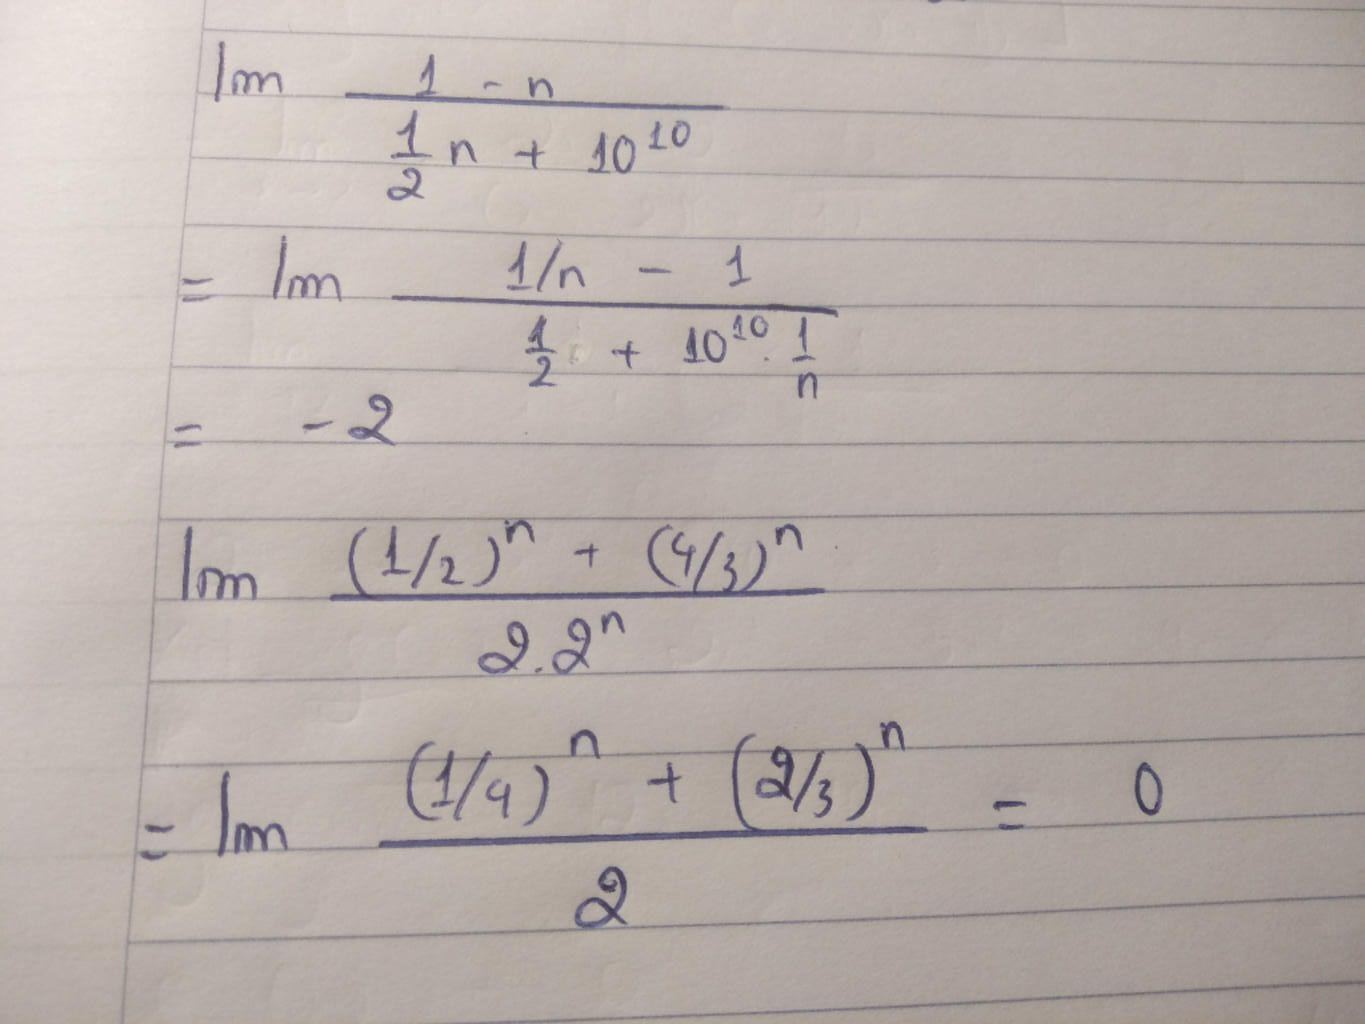 lim (1 - n) / (1/2 n + 10^10)
= lim (1/n - 1) / (1/2 + 10^10 . 1/n)
= -2
lim ((1/2)^n + (4/3)^n) / (2.2^n)
= lim ((1/4)^n + (2/3)^n) / 2 = 0